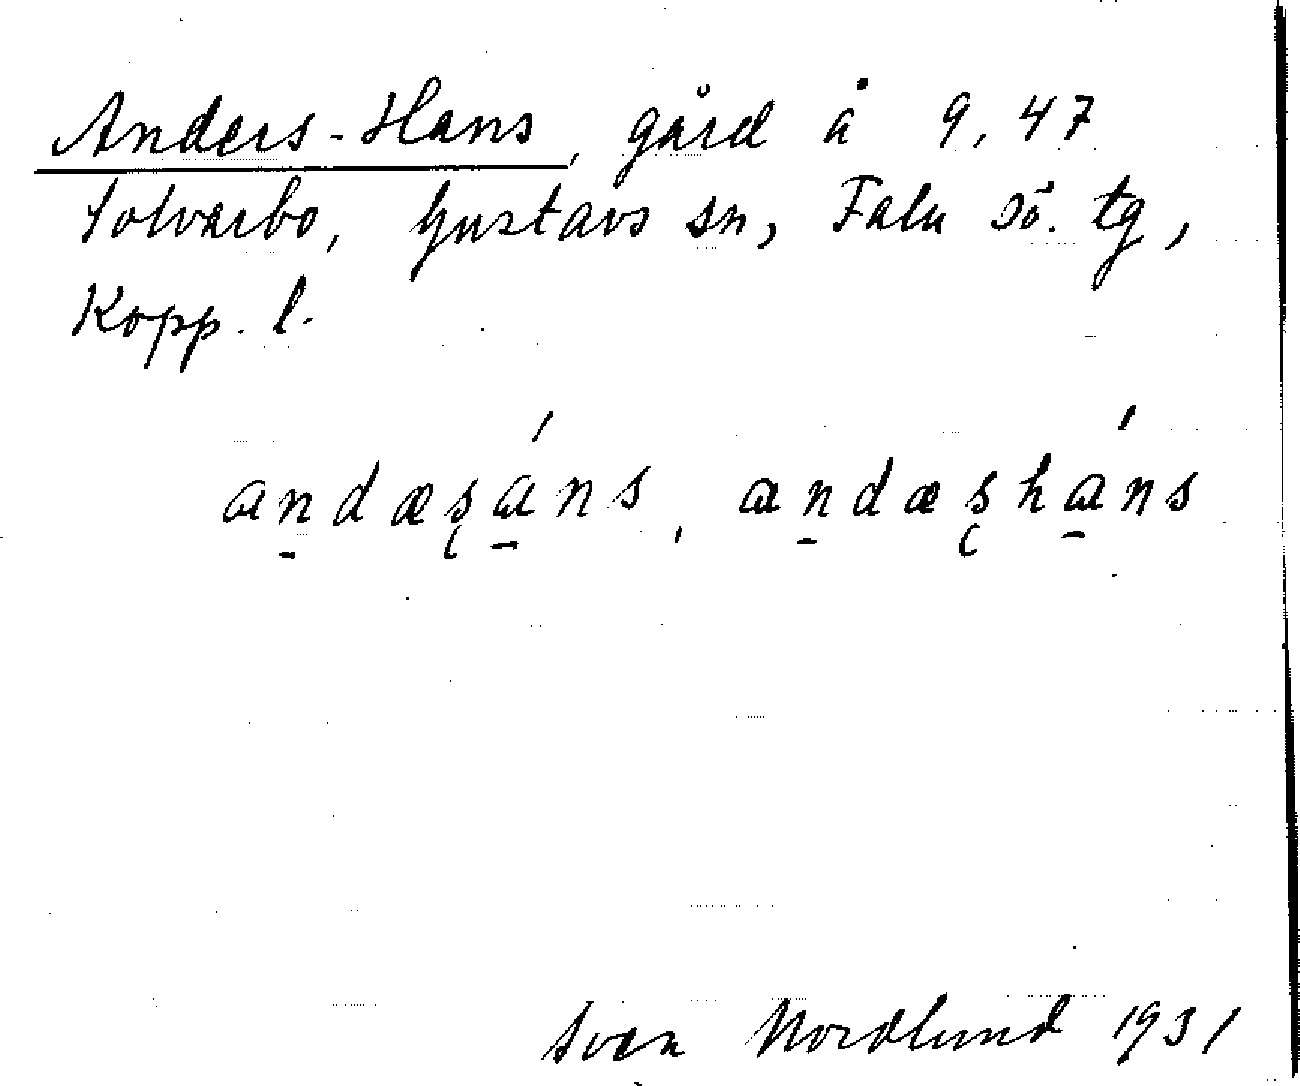 Anders-Hans, gård å 9, 47
Solvarbo, Gustavs sn, Falu sö. tg,
Kopp. l.
an̠dæʂá̠ns, an̠dæʂhá̠ns
Sven Nordlund 1931